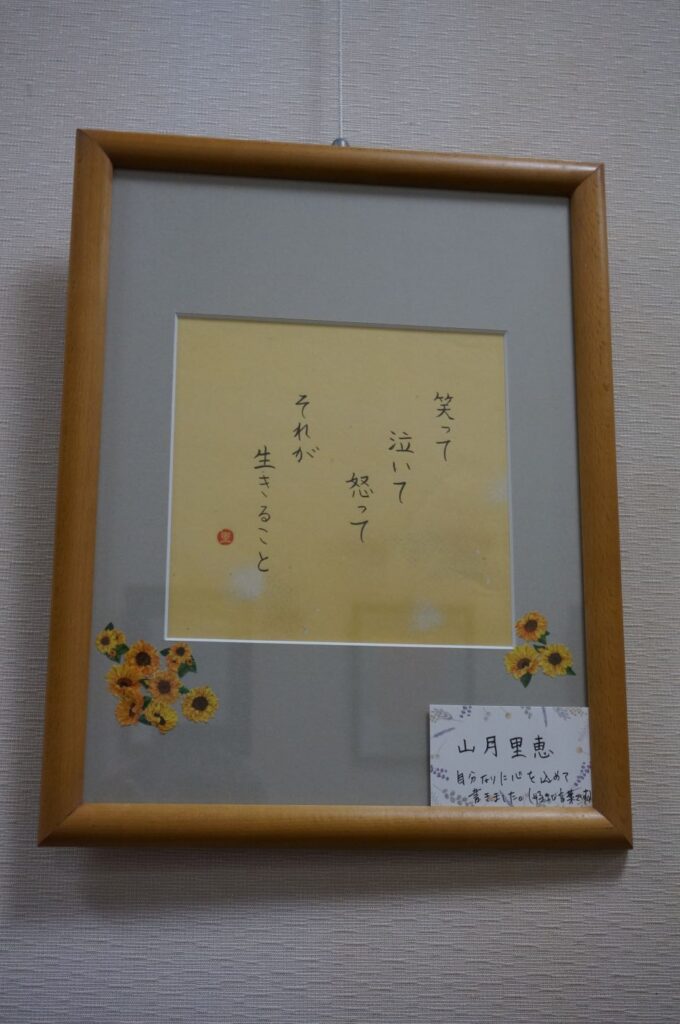 笑って
泣いて
怒って
それが
生きること
里
山月里恵
自分なりに心を込めて
書きました。好きな言葉です